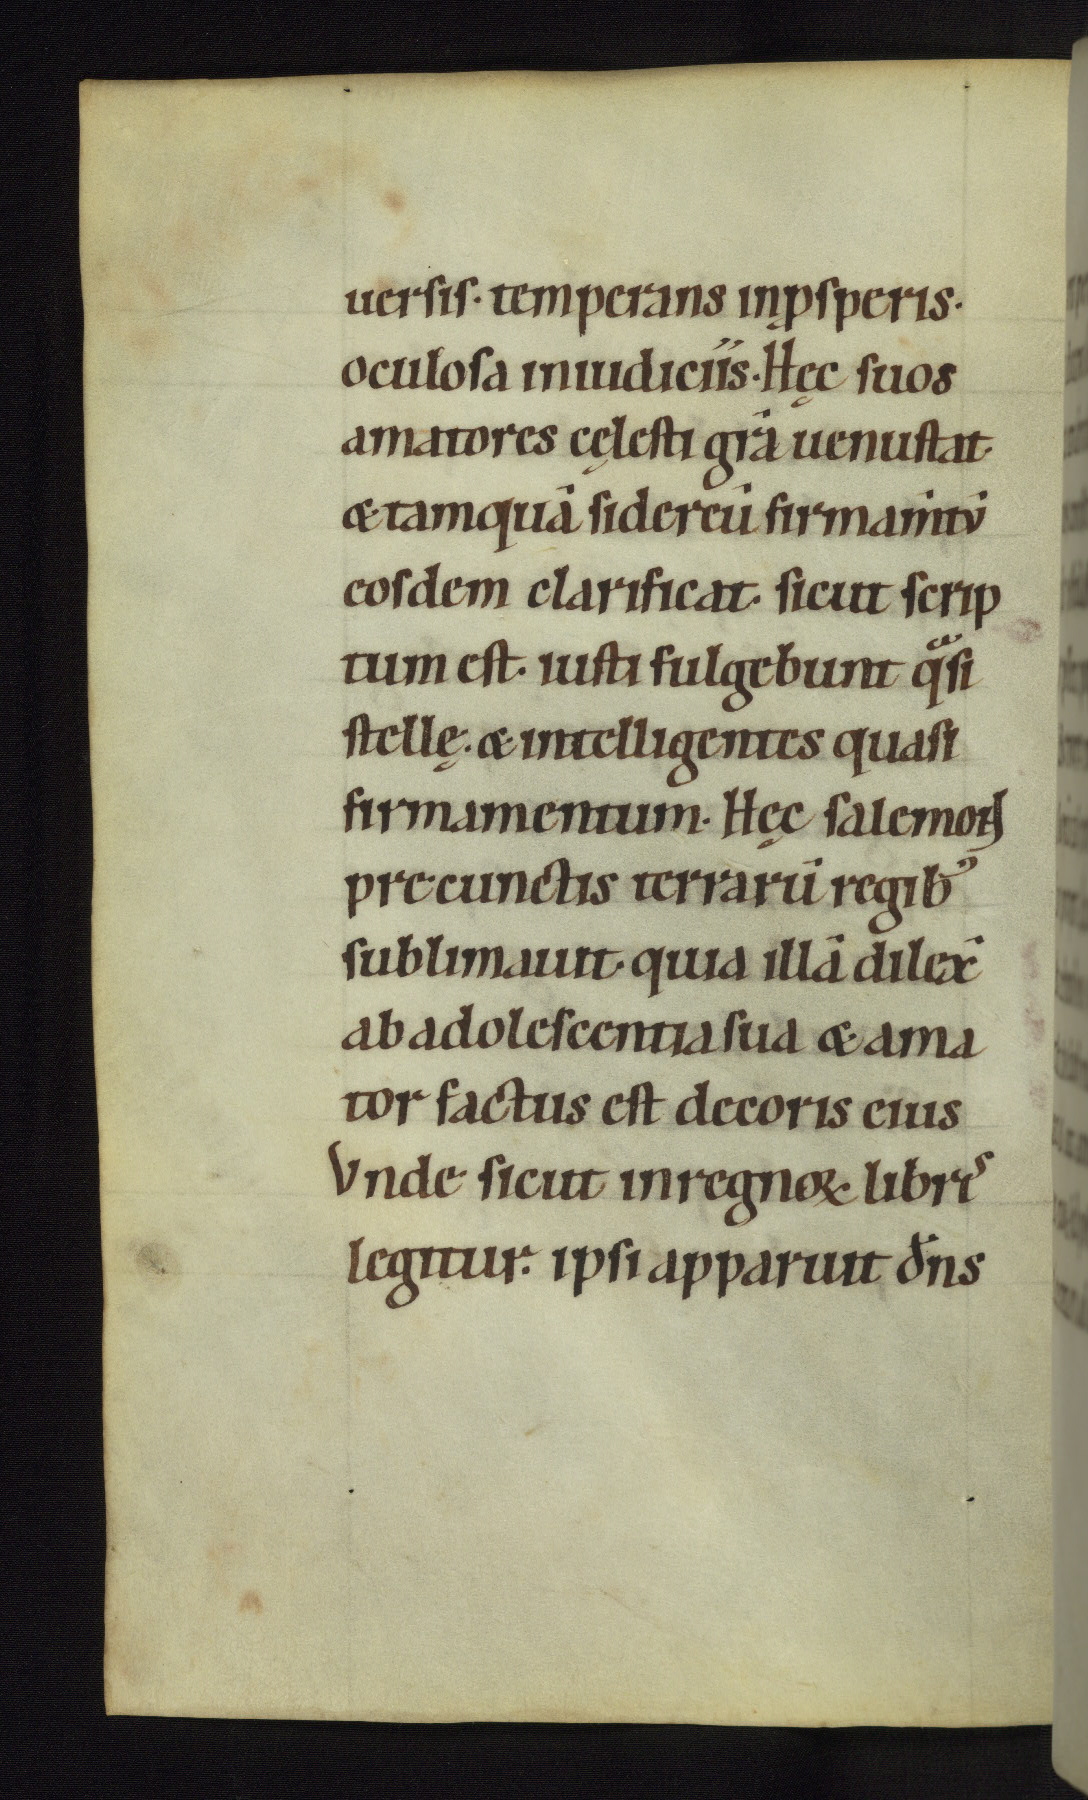 uersis· temperans inꝓsperis·
oculosa iniudiciis·Hęc suos
amatores cęlesti grā uenustat·
& tamquā sidereū firmam̄tū
eosdem clarificat· sicut scrip
tum est· iusti fulgebunt qͣsi
stellę· & intelligentes quasi
firmamentum· Hęc salemonē
pre cunctis terrarū regibꝰ
sublimauit· quia illā dilex̄
ab adolescentia sua & ama
tor factus est decoris eius
Vnde sicut inregnoꝝ libris
legitur· ipsi apparuit dn̄s